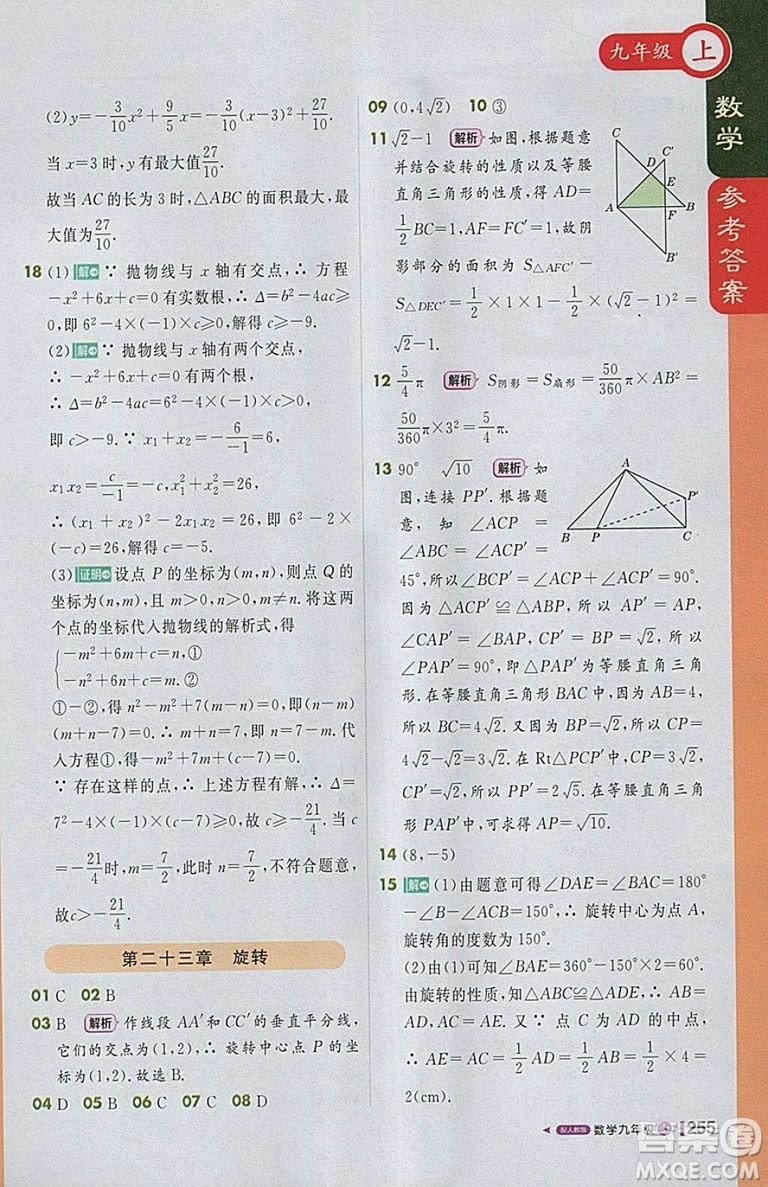 九年级 上
数学
参考答案
(2) y=-3/10x²+9/5x=-3/10(x-3)²+27/10
当 x=3 时, y 有最大值27/10.
故当 AC 的长为 3 时, △ABC 的面积最大, 最
大值为27/10.
18 (1) 解 ∵ 抛物线与 x 轴有交点, ∴ 方程
-x²+6x+c=0 有实数根, ∴ Δ=b²-4ac≥
0, 即 6²-4×(-1)×c≥0, 解得 c≥-9.
(2) 解 ∵ 抛物线与 x 轴有两个交点,
∴ -x²+6x+c=0 有两个根,
∴ Δ=b²-4ac=6²-4×(-1)×c>0,
即 c>-9. ∵ x₁+x₂=-6/-1=6,
x₁x₂=c/-1=-c, x₁²+x₂²=26,
∴ (x₁+x₂)²-2x₁x₂=26, 即 6²-2×
(-c)=26, 解得 c=-5.
(3) 证明 设点 P 的坐标为(m,n), 则点 Q 的
坐标为(n,m), 且 m>0,n>0,m≠n. 将这两
个点的坐标代入抛物线的解析式, 得
{-m²+6m+c=n,①
-n²+6n+c=m.②
①-②, 得 n²-m²+7(m-n)=0, 即(m-
n)(7-m-n)=0. ∴ m+n=7, n=7-m. 代
入方程①, 得-m²+7m+c-7=0.
∵ 存在这样的点, ∴ 上述方程有解, ∴ Δ=
7²-4×(-1)×(c-7)≥0, 故 c≥-21/4. 当 c
=-21/4时, m=7/2, 此时 n=7/2, 不符合题意,
故c>-21/4.
第二十三章 旋转
01 C 02 B
03 B 解析 作线段 AA′和 CC′的垂直平分线,
它们的交点为(1,2), ∴ 旋转中心点 P 的坐
标为(1,2). 故选 B.
04 D 05 B 06 C 07 C 08 D
09 (0,4√2) 10 ③
11 √2-1 解析 如图, 根据题意
并结合旋转的性质以及等腰
直角三角形的性质, 得 AD=
1/2BC=1, AF=FC′=1, 故阴
影部分的面积为 S△AFC′-
S△DEC′=1/2×1×1-1/2×(√2-1)²=
√2-1.
C D C′ E A F B B′
12 5/4π 解析 S阴影=S扇形=50/360π×AB²=
50/360π×3²=5/4π.
13 90° √10 解析 如
图, 连接 PP′. 根据题
意, 知 ∠ACP =
∠ABC = ∠ACP′ =
A P′ B P C
45°, 所以∠BCP′=∠ACP+∠ACP′=90°.
因为 △ACP′≌△ABP, 所以 AP′=AP,
∠CAP′=∠BAP, CP′=BP=√2, 所以
∠PAP′=90°, 即△PAP′为等腰直角三角
形. 在等腰直角三角形 BAC 中, AB=4,
所以 BC=4√2. 又因为 BP=√2, 所以 CP=
4√2-√2=3√2. 在 Rt△PCP′中, CP=3√2,
CP′=√2, 所以 PP′=2√5. 在等腰直角三角形
PAP′中, 可求得 AP=√10.
14 (8,-5)
15 解 (1) 由题意可得∠DAE=∠BAC=180°
-∠B-∠ACB=150°, ∴ 旋转中心为点 A,
旋转角的度数为 150°.
(2) 由(1)可知∠BAE=360°-150°×2=60°.
由旋转的性质, 知△ABC≌△ADE, ∴ AB=
AD, AC=AE. 又∵ 点 C 为 AD 的中点,
∴ AE=AC=1/2AD=1/2AB=1/2×4=
2(cm).
配人教版 数学九年级 上 255
答案圈
MXQE.COM